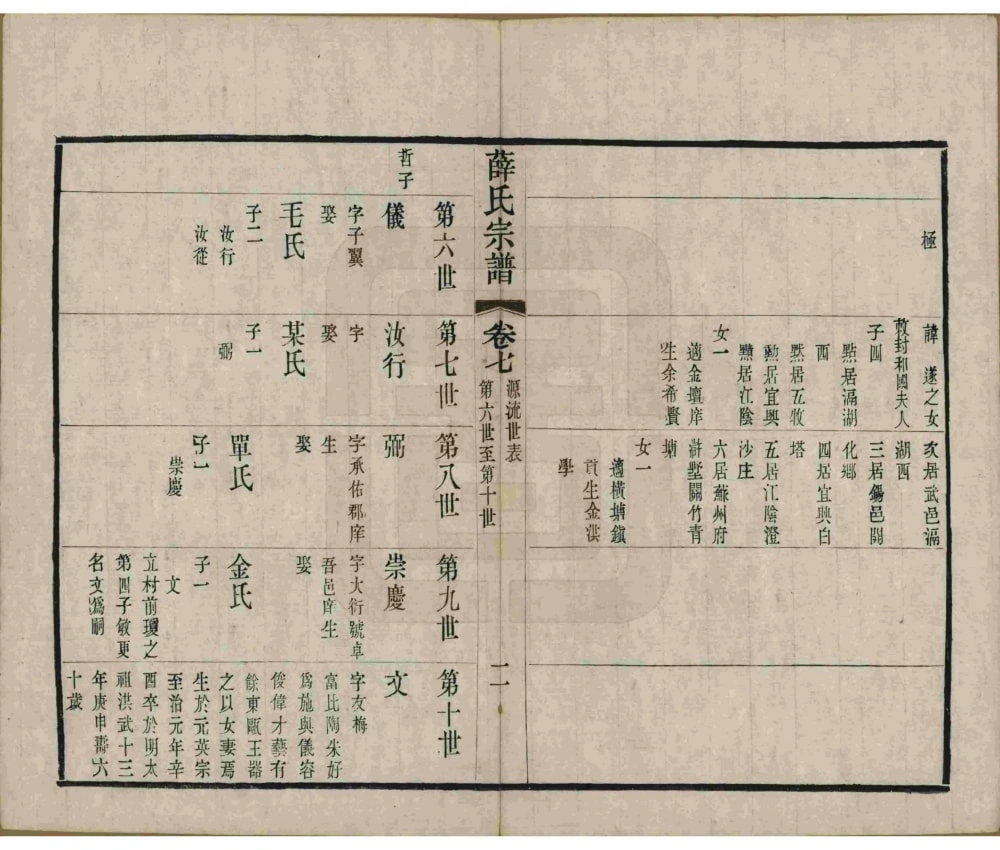 極
諱遂之女
敕封和國夫人
子四
點居滆湖
西
默居五牧
勳居宜興
黥居江陰
女一
適金壇庠
生余希賢
友居武邑滆
湖西
三居錫邑開
化鄉
四居宜興白
塔
五居江陰澄
沙庄
六居蘇州府
滸墅關竹青
塘
女一
適橫塘鎮
貢生金洪
學
薛氏宗譜
卷七
源流世表
第六世至第十世
二
哲子
第六世
儀
字子翼
娶
毛氏
子二
汝行
汝從
第七世
汝行
字
娶
某氏
子一
弼
第八世
弼
字承佑郡庠
生
娶
單氏
子一
崇慶
第九世
崇慶
字大衍號卓
吾邑庠生
娶
金氏
子一
文
立村前瓊之
第四子敏更
名文爲嗣
第十世
文
字友梅
富比陶朱好
爲施與儀容
俊偉才藝有
餘東甌王器
之以女妻焉
生於元英宗
至治元年辛
酉卒於明太
祖洪武十三
年庚申壽六
十歲